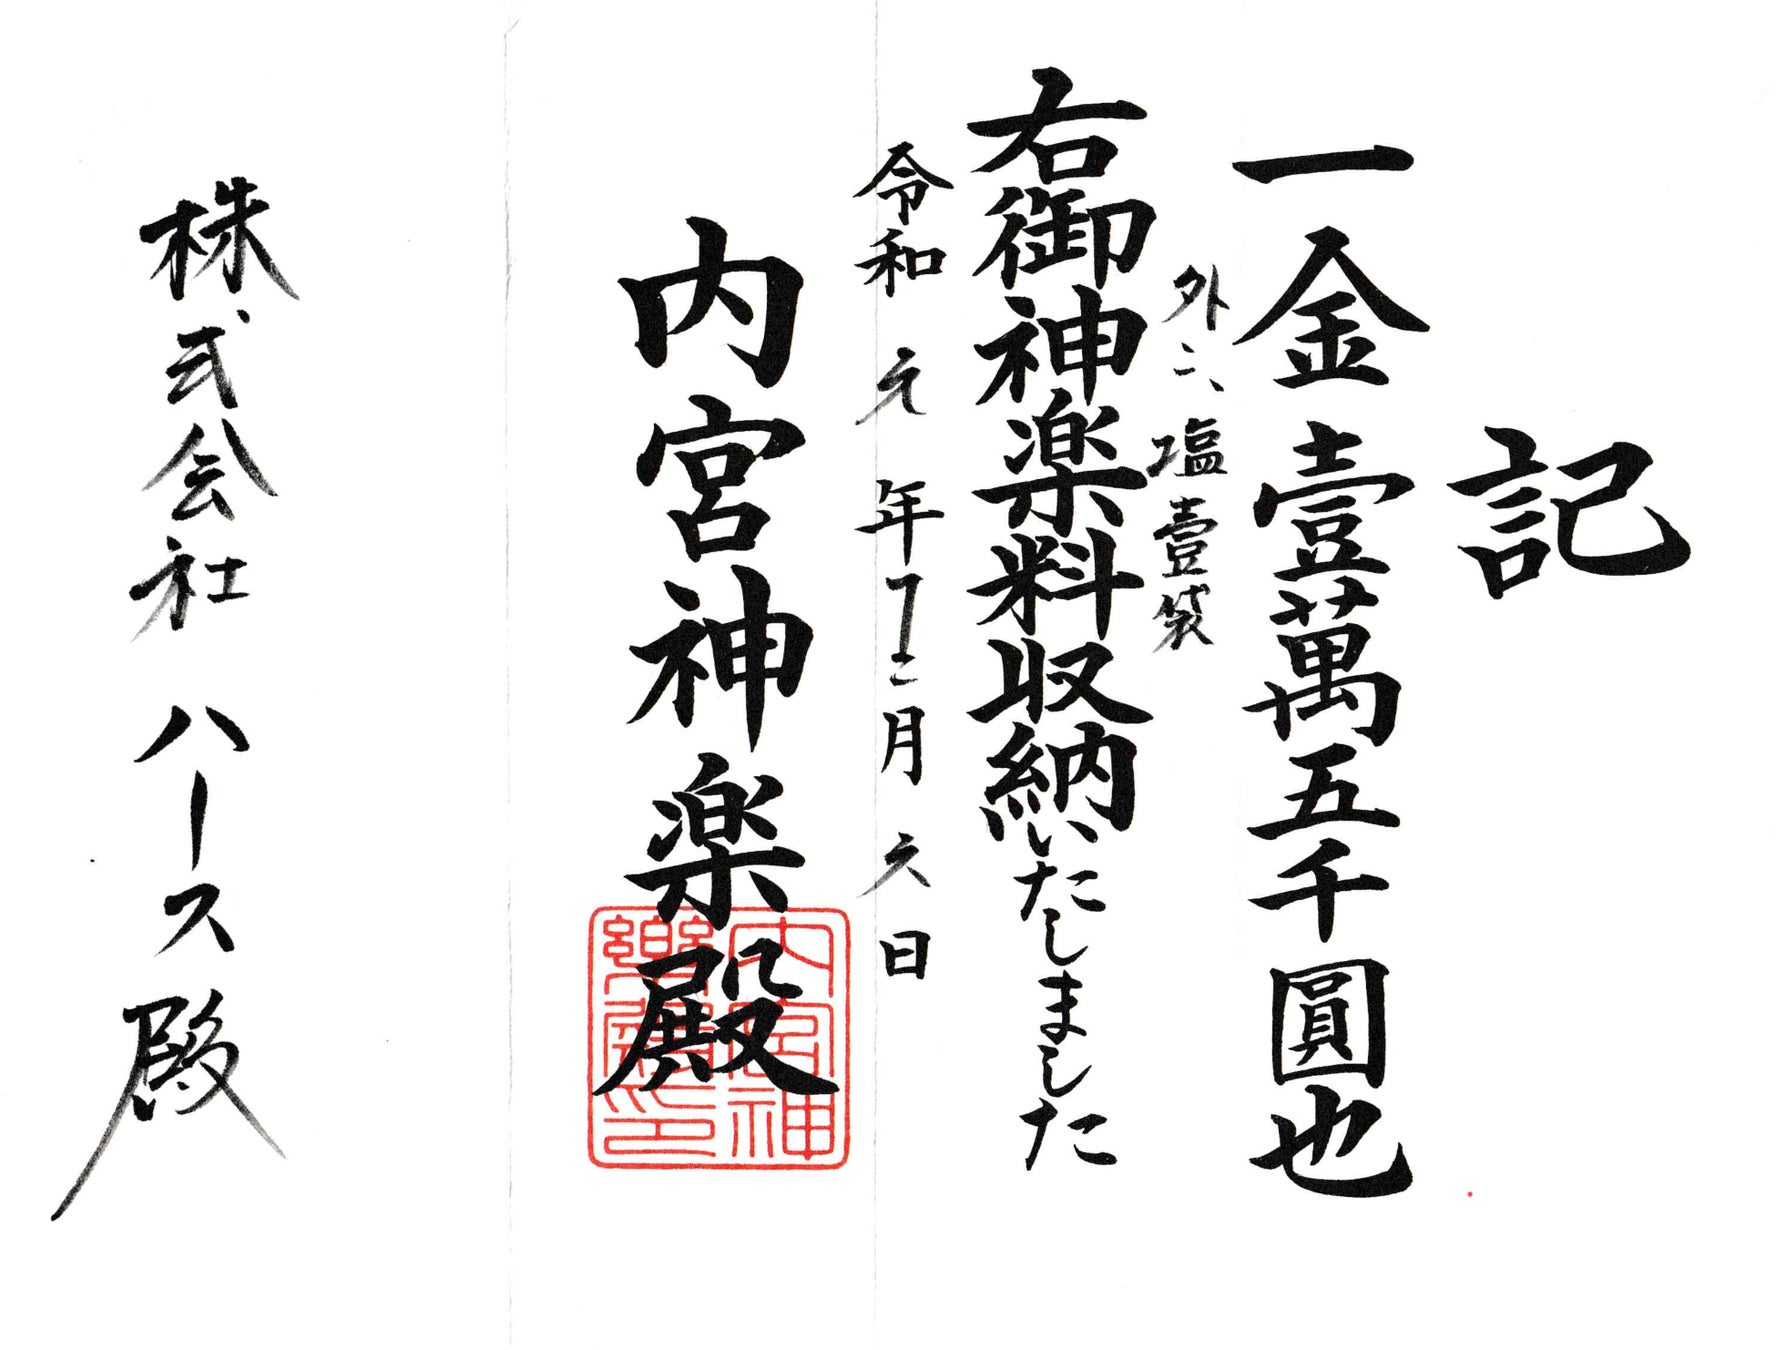 記
一金壹萬五千圓也
外ニ、塩壹袋
右御神楽料収納いたしました
令和元年十二月六日
内宮神楽殿
内宮神
楽殿印
株式会社ハース殿